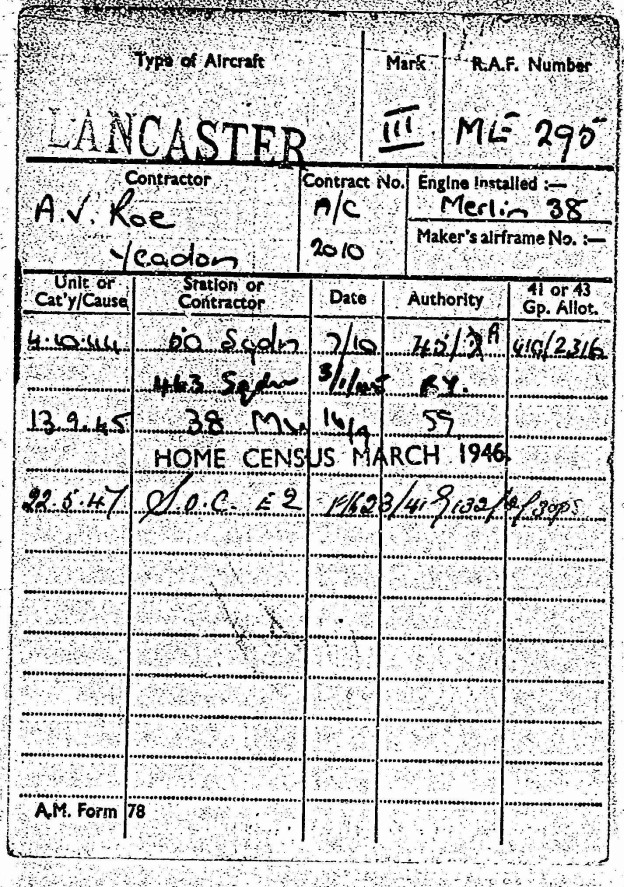 Type of Aircraft Mark R.A.F. Number
LANCASTER III ME 295
Contractor Contract No. Engine Installed :—
A.V. Roe A/C Merlin 38
Yeadon 2010 Maker's airframe No. :—
Unit or Cat'y/Cause Station or Contractor Date Authority 41 or 43 Gp. Allot.
4.10.44 Sqdn 7/10
463 Sqdn 3/1/45 RY.
13.9.45 38 Mu 59
HOME CENSUS MARCH 1946.
22.5.47 S.O.C. E2
A.M. Form 78